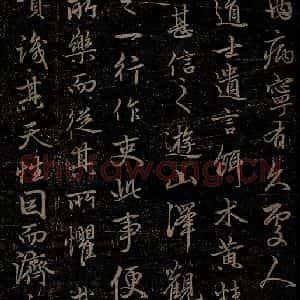 病寧有久處人
道士遺言餌朮黃精
甚信之遊山澤觀
之一行作吏此事便
所樂而從其所懼
識其天性因而濟
Shufawang.CN